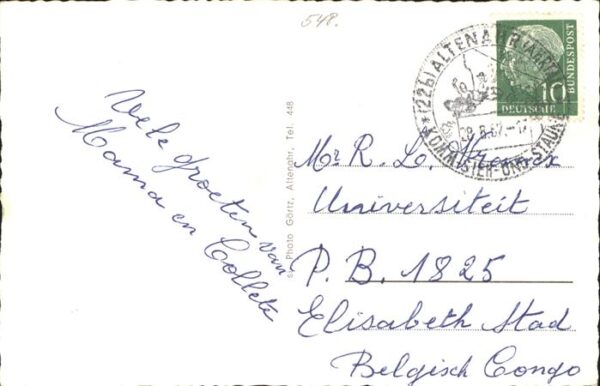 548.
Vele groeten van
Mama en Collete
Photo Görtz, Altenahr, Tel. 448
(22b) ALTENAHR (AHR)
KOMM
10
BUNDESPOST
DEUTSCHE
Mr R. L.
Universiteit
P. B. 1825
Elisabeth Stad
Belgisch Congo